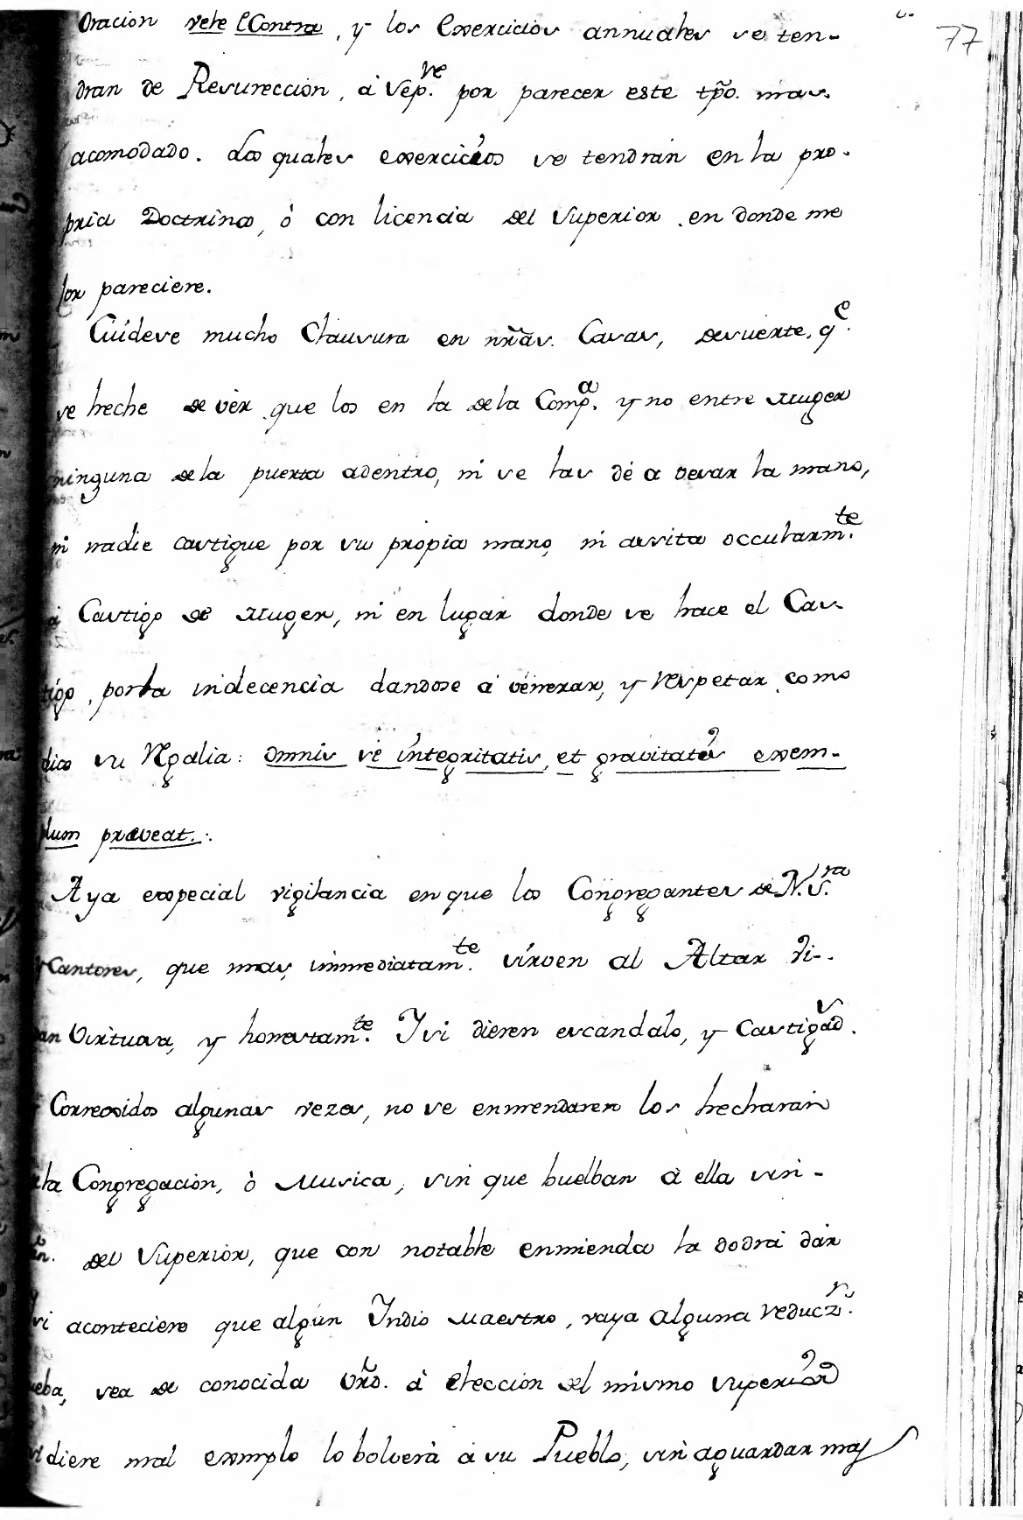 77
Oracion vete &Contra, y los Exercicios annuales se ten-
dran de Resureccion, à Sep.ᵛᵉ por parecer este tp̃o. mas
acomodado. Los quales exercicios se tendrán en la pro-
pria Doctrina, ò con licencia del Superior en donde me
jor pareciere.
Cuídese mucho Clausura en nr̃as. Casas, desuerte, q.ᵉ
se heche de vèr que los en la dela Comp.ᵃ y no entre Muger
ninguna dela puerta adentro, ni se las dé a besar la mano,
ni nadie castigue por su propia mano, ni assita occultam.ᵗᵉ
à Castigo de Muger, ni en lugar donde se hace el Cas-
tigo, porla indecencia dandose à venerar, y respetar como
dice su Rgalia: omnis se integritatis, et gravitatis exem-
plum præveat.
Aya especial vigilancia en que los Congregantes de N.S.ʳᵃ
y Cantores, que mas immediatam.ᵗᵉ sirven al Altar vi-
van Virtuosa, y honestam.ᵗᵉ Y si dieren escandalo, y Castigad.ˢ
Corregidos algunas vezes, no se enmendaren los hecharán
la Congregacion, ò Musica, sin que buelban à ella sin-
del Superior, que con notable enmienda la podrá dár
si aconteciere que algún Indio Maestro, vaya alguna reducz.ⁿ
sea de conocida Vrd̃. à eleccion del mismo superior
si diere mal exmplo lo bolverà à su Pueblo, sin aguardar mas